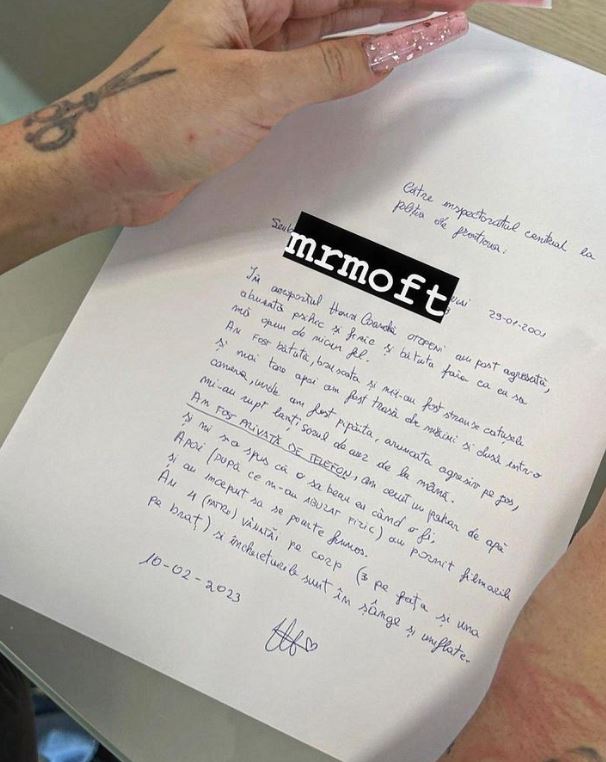 Către inspectoratul central la
poliția de frontieră;
mrmoft
29-01-2001
În aeroportul Henri Coandă OTOPENI am fost agresată,
abuzată psihic și fizic și bătută fără ca eu să
mă opun de niciun fel.
Am fost bătută, bruscată și mi-au fost strânse cătușele
și mai tare apoi am fost trasă de mâini și dusă intr-o
cameră, unde am fost pipăită, aruncată agresiv pe jos,
mi-au rupt lanțișorul de aur de la mână.
AM FOST PRIVATĂ DE TELEFON, am cerut un pahar de apă
și mi s-a spus că o să beau eu când o fi;
Apoi (DUPĂ CE M-AU ABUZAT FIZIC) au pornit filmările
și au început să se poarte frumos.
Am 4 (PATRU) VÂNĂTĂI pe corp (3 pe față și una
pe braț) și încheieturile sunt în sânge și umflate.
10-02-2023